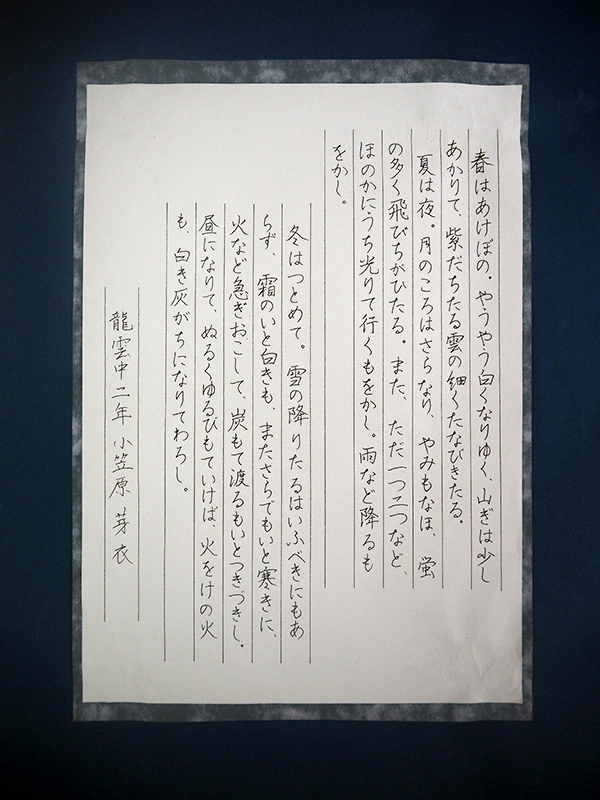 春はあけぼの。やうやう白くなりゆく、山ぎは少し
あかりて、紫だちたる雲の細くたなびきたる。
夏は夜。月のころはさらなり、やみもなほ、蛍
の多く飛びちがひたる。また、ただ一つ二つなど、
ほのかにうち光りて行くもをかし。雨など降るも
をかし。
冬はつとめて。雪の降りたるはいふべきにもあ
らず、霜のいと白きも、またさらでもいと寒きに、
火など急ぎおこして、炭もて渡るもいとつきづきし。
昼になりて、ぬるくゆるびもていけば、火をけの火
も、白き灰がちになりてわろし。
龍雲中二年 小笠原 芽衣